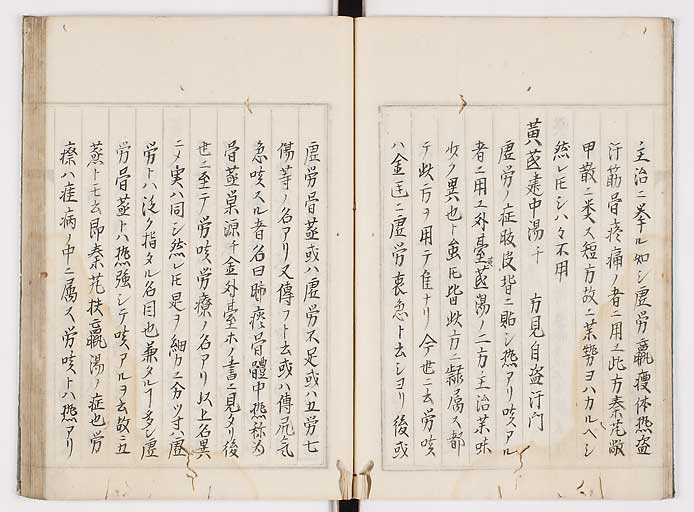 主治ニ挙ル如シ虚労羸痩体熱盗
汗筋骨疼痛ノ者ニ用ユ此方秦艽鼈
甲散ニ类ス短方故ニ薬勢ヨハカルヘシ
然レ𪜈シハ々不用
黄芪建中湯十 方見自盗汗門
虚労ノ症肢皮背ニ貼シ熱アリ咳アル
者ニ用ユ外臺黄芪湯ノ二方主治薬味
少ク異也ト虽𪜈皆此方ニ隷属ス都
テ此方ヲ用テ隹ナリ今世ニ云労咳
ハ金匡ニ虚労裏急ト云シヨリ後或
虚労骨蒸或ハ虚労不足或ハ五労七
傷等ノ名アリ又傳フト云或ハ傳尸気
急咳スル者名曰肺痿骨體中熱称為
骨蒸巣源千金外臺ホノ書ニ見タリ後
世ニ至テ労咳労療ノ名アリ以上名異
ニメ実ハ同シ然レ𪜈是ヲ細ウニ分ツ寸ハ虚
労トハ泛ク指タル名目也兼タルー多シ虚
労骨蒸トハ熱強シテ咳アルヲ云故ニ五
蒸トモ云即秦艽扶羸湯ノ症也労
瘵ハ疰病ノ中ニ属ス労咳トハ熱アリ